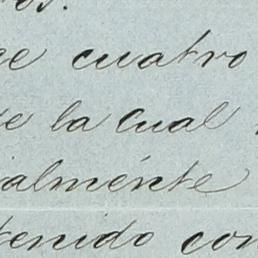 cuatro
la cual
almente
tenido con